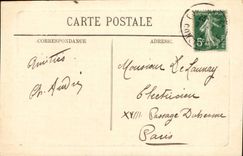 CARTE POSTALE
CORRESPONDANCE
ADRESSE
Amitiés
Ch. Audry
Monsieur De Launay
Electricien
XVIII Passage Dubesme
Paris
5c